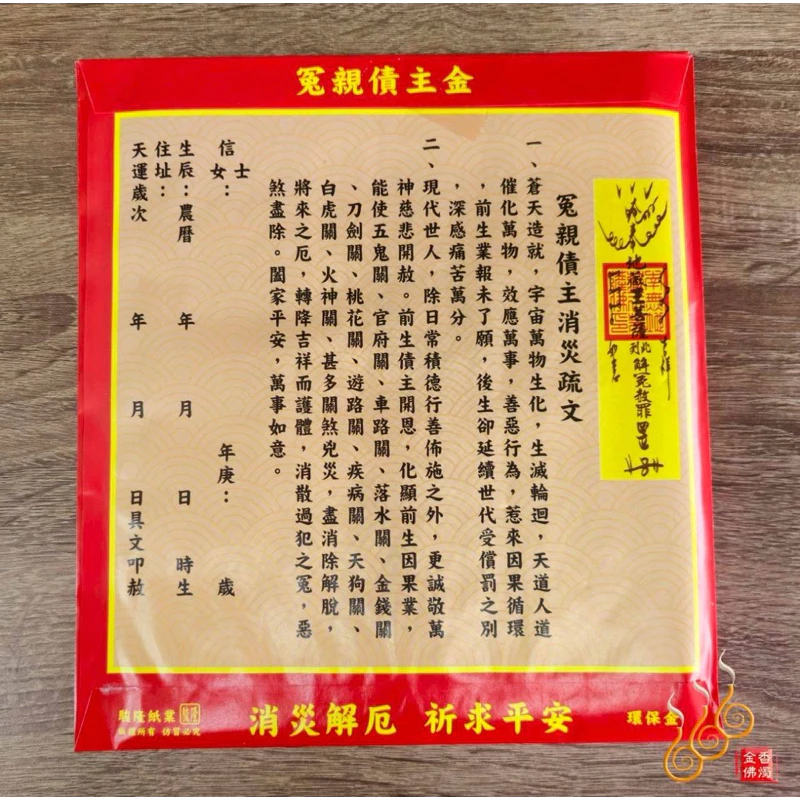 冤親債主金
地藏王菩薩
解冤赦罪
冤親債主消災疏文
一、蒼天造就，宇宙萬物生化，生滅輪迴，天道人道
催化萬物，效應萬事，善惡行為，惹來因果循環
，前生業報未了願，後生卻延續世代受償罰之別
，深感痛苦萬分。
二、現代世人，除日常積德行善佈施之外，更誠敬萬
神慈悲開赦。前生債主開恩，化顯前生因果業，
能使五鬼關、官府關、車路關、落水關、金錢關
、刀劍關、桃花關、遊路關、疾病關、天狗關、
白虎關、火神關、甚多關煞兇災，盡消除解脫，
將來之厄，轉降吉祥而護體，消散過犯之冤，惡
煞盡除。闔家平安，萬事如意。
信士女： 年庚： 歲
生辰：農曆 年 月 日 時生
住址：
天運歲次 年 月 日具文叩赦
駿隆紙業
版權所有 仿冒必究
消災解厄 祈求平安
環保金
香燭
金佛